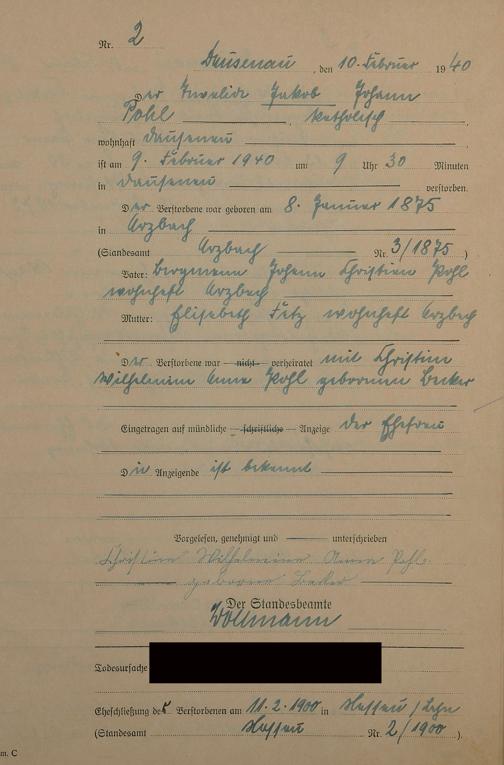 Nr. 2
Dausenau, den 10. Februar 1940
Der Invalide Jakob Johann
Pohl, katholisch,
wohnhaft Dausenau,
ist am 9. Februar 1940 um 9 Uhr 30 Minuten
in Dausenau verstorben.
Der Verstorbene war geboren am 8. Januar 1875
in Arzbach
(Standesamt Arzbach Nr. 3/1875)
Vater: Bergmann Johann Christian Pohl
wohnhaft Arzbach
Mutter: Elisabeth Fetz wohnhaft Arzbach
Der Verstorbene war nicht verheiratet mit Christine
Wilhelmine Anna Pohl geborenen Becker
Eingetragen auf mündliche schriftliche Anzeige der Ehefrau
Die Anzeigende ist bekannt
Vorgelesen, genehmigt und unterschrieben
Christine Wilhelmine Anna Pohl
geborene Becker
Der Standesbeamte
Wollmann
Todesursache
Eheschließung des Verstorbenen am 11.2.1900 in Nassau / Lahn
(Standesamt Nassau Nr. 2/1900).
m. C